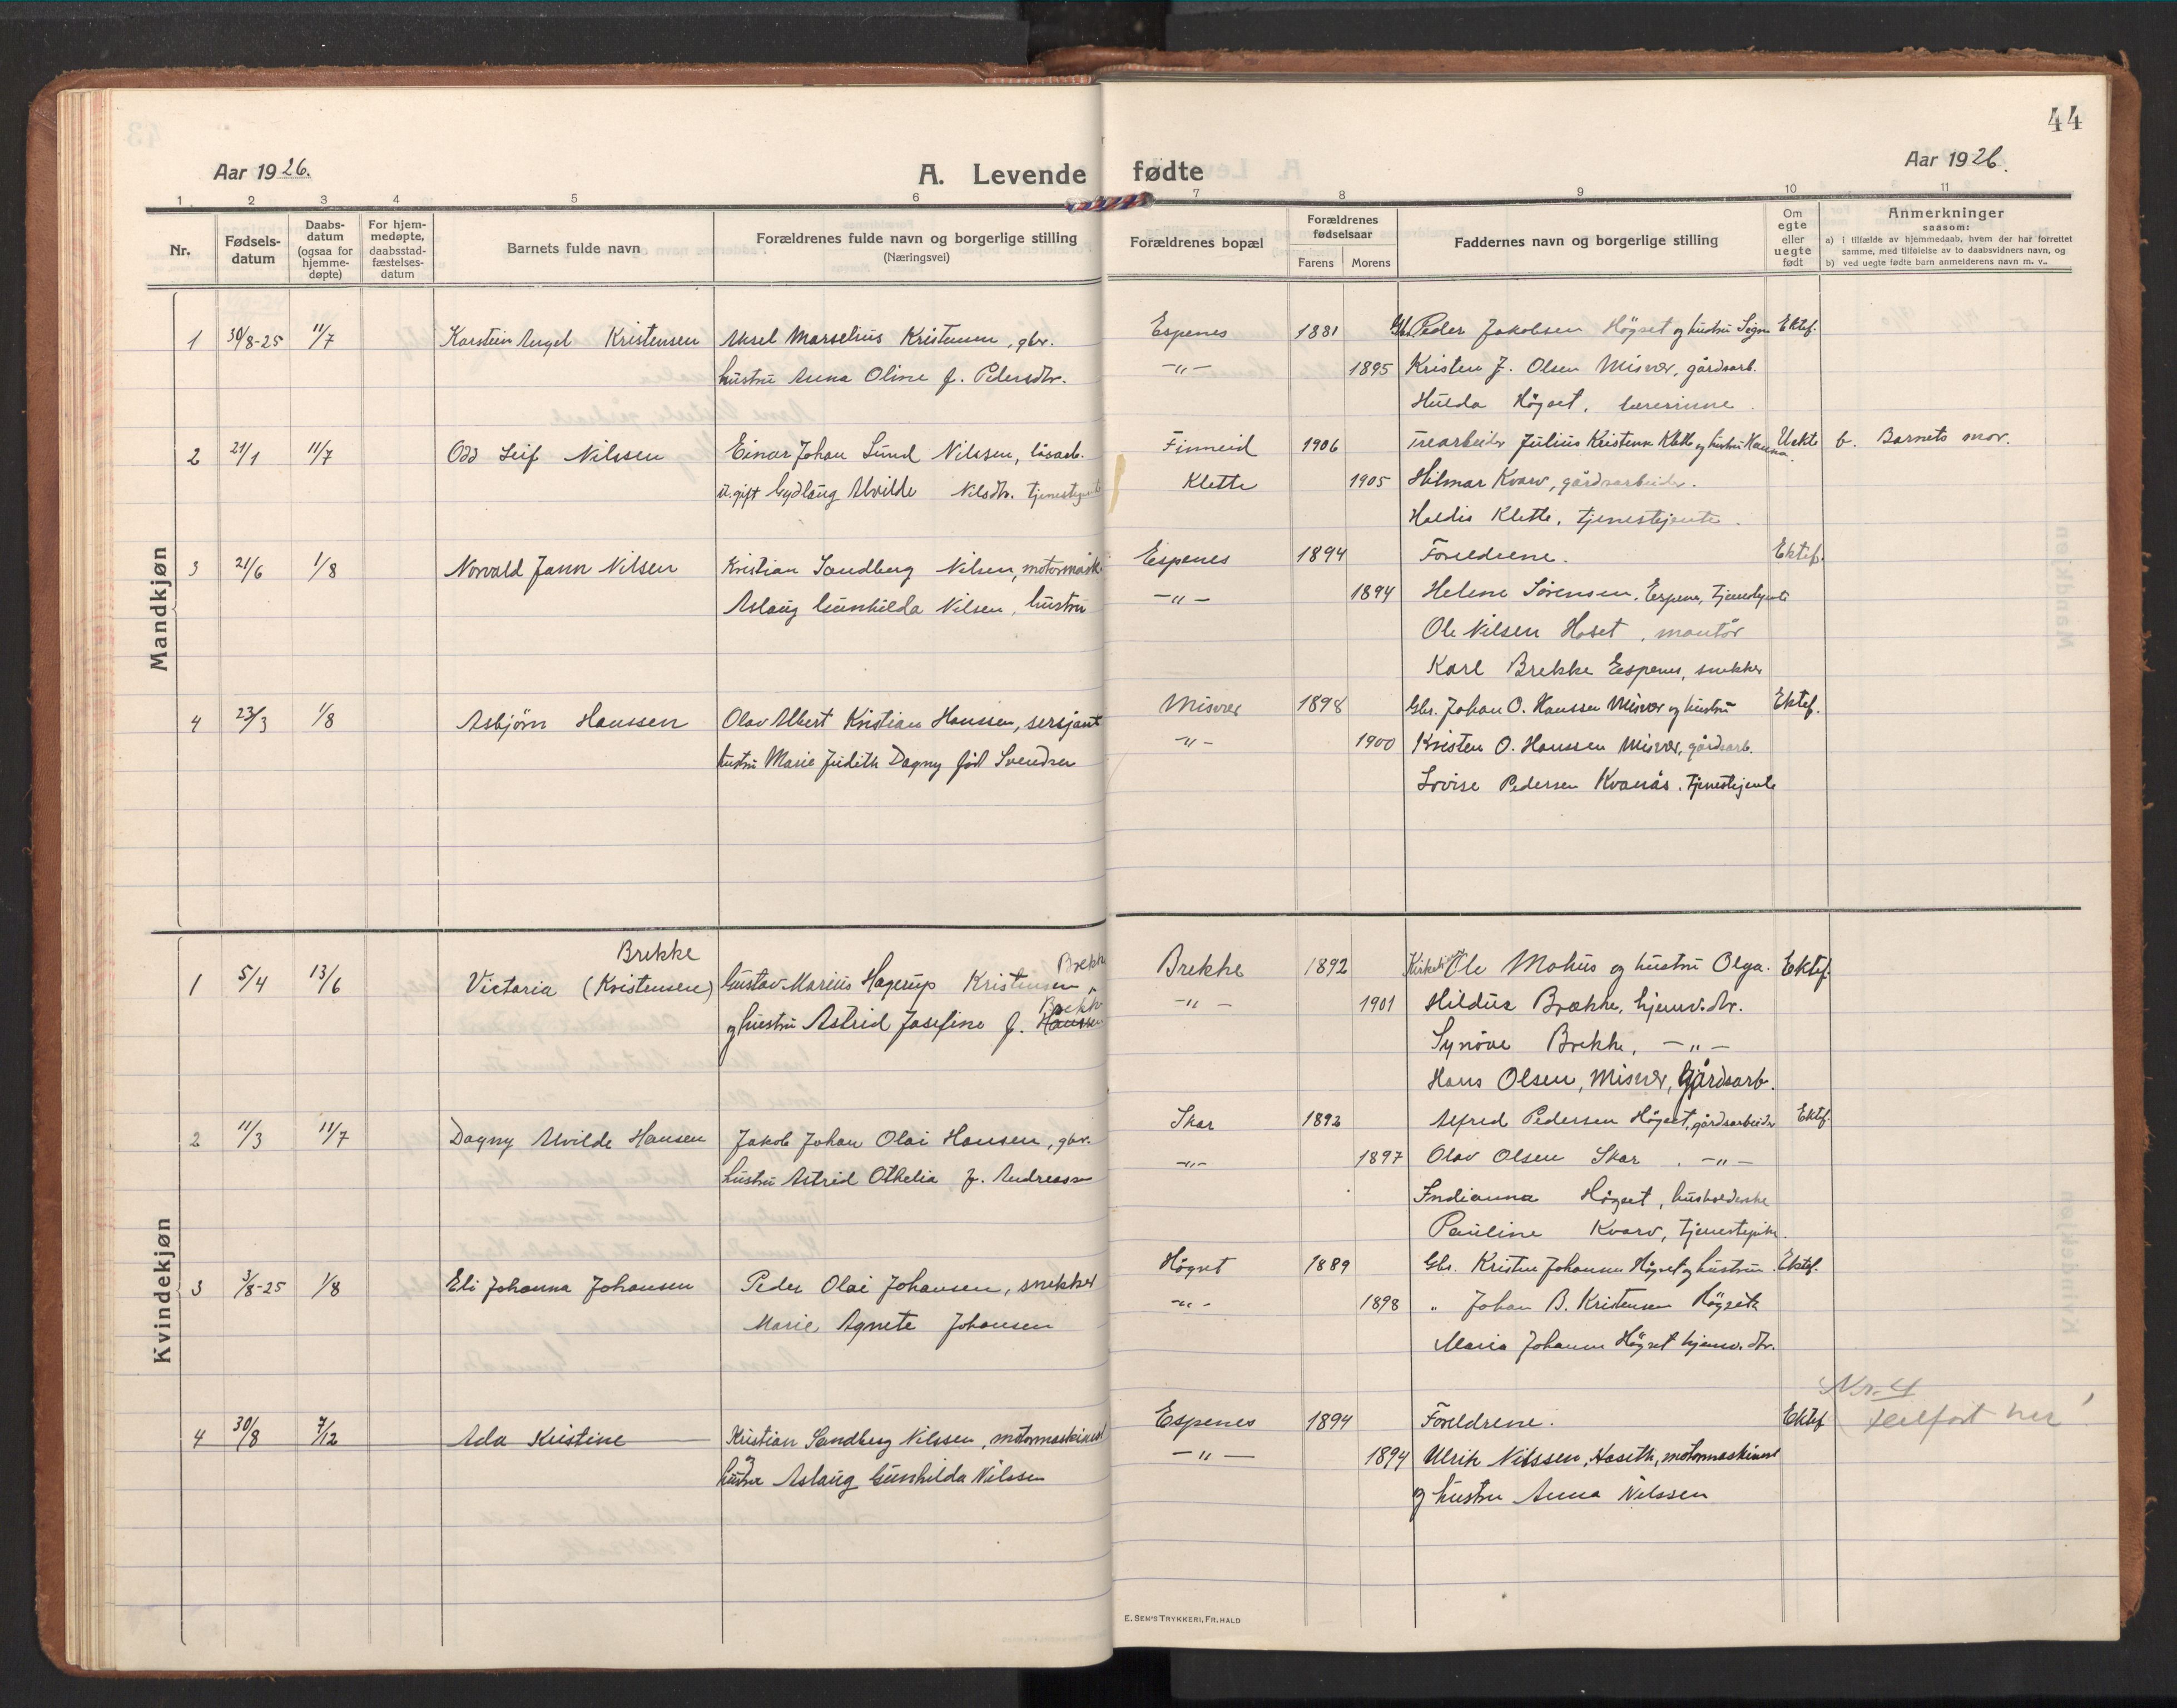 44
Aar 1926.
A. Levende fødte
Aar 1926.
1 2 3 4 5 6 7 8 9 10 11
Nr.
Fødsels-
datum
Daabs-
datum
(ogsaa for
hjemme-
døpte)
For hjem-
medøpte,
daabsstad-
fæstelses-
datum
Barnets fulde navn
Forældrenes fulde navn og borgerlige stilling
(Næringsvei)
Forældrenes bopæl
Forældrenes
fødselsaar
Farens Morens
Faddernes navn og borgerlige stilling
Om
egte
eller
uegte
født
Anmerkninger
saasom:
a) i tilfælde av hjemmedaab, hvem der har forrettet
samme, med tilføielse av to daabsvidners navn, og
b) ved uegte fødte barn anmelderens navn m. v..
Mandkjøn
1 30/8-25 11/7 Karstein Angel Kristensen Aksel Marselius Kristensen, gbr. Espenes 1881 Gbr. Peder Jakobsen Högset og hustru Signe Ektef.
hustru Anna Oline f. Pedersdtr. -"- 1895 Kristen J. Olsen Misvær, gårdsarb.
Hulda Högset, lærerinne.
2 21/1 11/7 Odd Leif Nilssen Einar Johan Lund Nilssen, lösarb. Finneid 1906 Trearbeider Julius Kristensen Klette og hustru Hanna. Uekte b. Barnets mor.
u. gift Gydlaug Alvilde Nilsdtr. tjenestejente Klette 1905 Hilmar Kvarv, gårdsarbeider.
Haldis Klette, tjenestejente.
3 21/6 1/8 Norvald Jann Nilsen Kristian Sandberg Nilsen, motormask. Espenes 1894 Foreldrene. Ektef.
Aslaug Gunhilda Nilsen, hustru -"- 1894 Helene Sörensen, Espenes, tjenestejente
Ole Nilsen Haset, montör
Karl Brekke Espenes, snekker
4 23/3 1/8 Asbjörn Hanssen Olav Albert Kristian Hanssen, sersjant Misvær 1898 Gbr. Johan O. Hanssen Misvær og hustru Ektef.
hustru Marie Judith Dagny föd Svendsen -"- 1900 Kristen O. Hanssen Misvær, gårdsarb.
Lovise Pedersen Kvanås, tjenestejente
Kvindekjøn
Brekke Brekke
1 5/4 13/6 Victoria (Kristensen) Gustav Marius Hagerup Kristensen Brekke 1892 Ole Mohus og hustru Olga. Ektef.
Brekke
og hustru Astrid Josefine f. Hanssen -"- 1901 Hildur Brekke, hjemv. dtr.
Synöve Brekke, -"-
Hans Olsen, Misvær, Gårdsarb.
2 11/3 11/7 Dagny Alvilde Hansen Jakob Johan Olai Hansen, gbr. Skar 1892 Alfred Pedersen Högset, gårdsarbeider Ektef.
hustru Astrid Othelia f. Andreassen -"- 1897 Olav Olsen Skar. -"-
Indianna Högset, husholderske
Pauline Kvarv, tjenestepike.
3 3/8-25 1/8 Eli Johanna Johansen Peder Olai Johansen, snekker Högset 1889 Gbr. Kristen Johansen Högset og hustru. Ektef.
Marie Agnete Johansen -"- 1898 " Johan B. Kristensen Högseth
Maria Johansen Högset hjemv. dtr.
Nr. 4
4 30/8 7/12 Ada Kristine Kristian Sandberg Nilssen, motormaskinist Espenes 1894 Foreldrene. Ektef. Feilført her!
og hustru Aslaug Gunhilda Nilssen -"- 1894 Ulrik Nilssen, Haseth, motormaskinist
og hustru Anna Nilssen
E. SEM'S TRYKKERI, FR. HALD